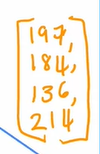 197,
184,
136,
214